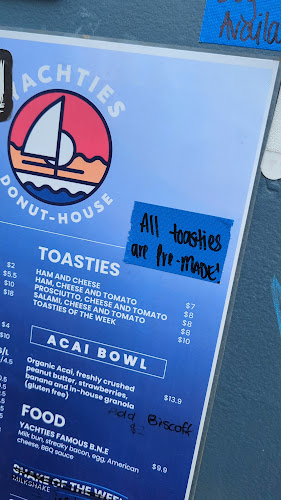 Availa
YACHTIES
DONUT-HOUSE
All toasties
are Pre-MADE!
TOASTIES
HAM AND CHEESE $7
HAM, CHEESE AND TOMATO $8
PROSCIUTTO, CHEESE AND TOMATO $8
SALAMI, CHEESE AND TOMATO $8
TOASTIES OF THE WEEK $10
$2
$5.5
$10
$18
ACAI BOWL
Organic Acai, freshly crushed
peanut butter, strawberries,
banana and in-house granola
(gluten free) $13.9
Add Biscoff
$2
$4
$10
FOOD
YACHTIES FAMOUS B.N.E
Milk bun, streaky bacon, egg, American
cheese, BBQ sauce $9.9
SHAKE OF THE WEEK
MILKSHAKE